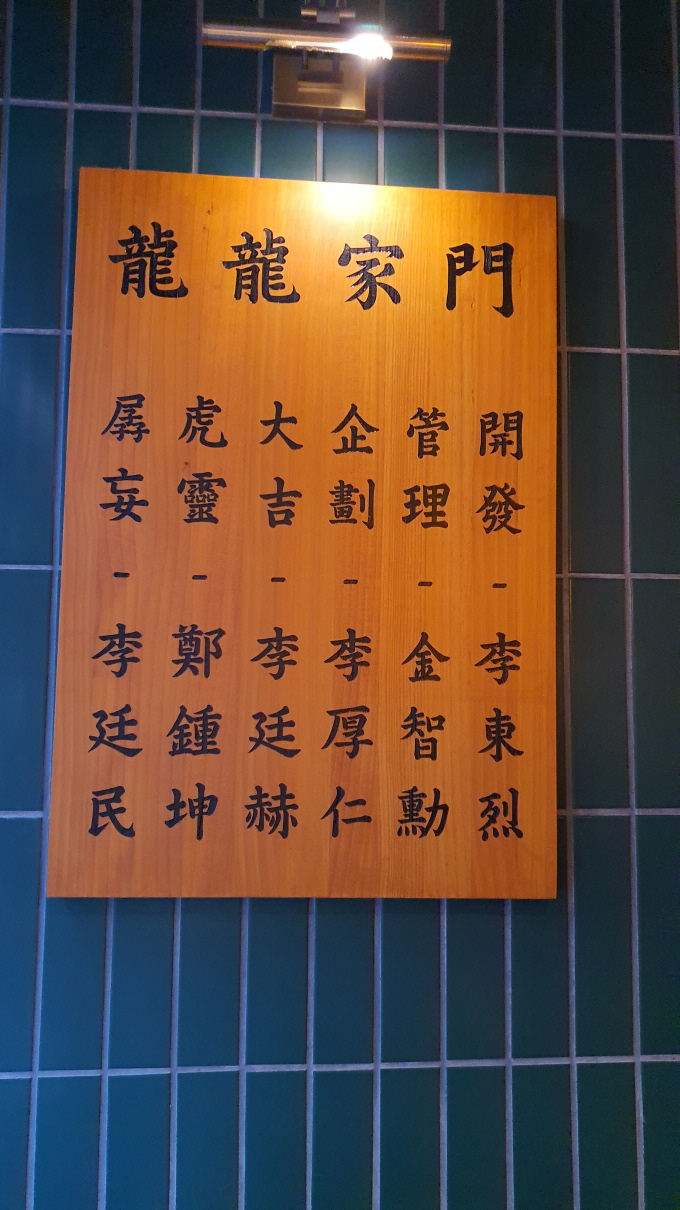 龍龍家門
開發-李東烈
管理-金智勳
企劃-李厚仁
大吉-李廷赫
虎靈-鄭鍾坤
孱妄-李廷民